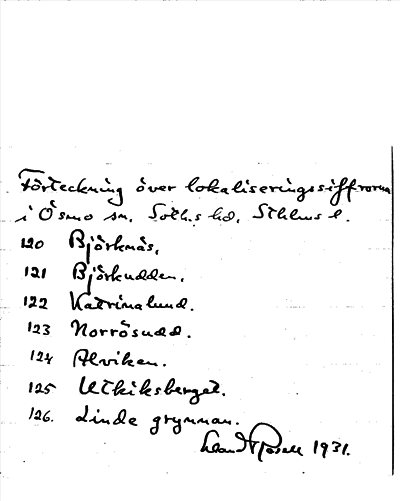 Förteckning över lokaliseringssiffrorna
i Ösmo sn, Soth.s hd, Sthlms l.
120 Björknäs.
121 Björkudden.
122 Katrinalund.
123 Norrösudd.
124 Alviken.
125 Utkiksberget.
126. Linde grynnan.
1931.